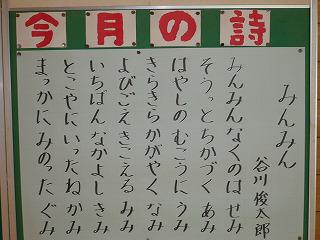 今月の詩
みんみん
谷川俊太郎
みんみんなくのは せみ
そうっとちかづく あみ
はやしの むこうに うみ
きらきらかがやく なみ
よびごえきこえる みみ
いちばん なかよし きみ
とこやに いった ねかみ
まっかに みのった ぐみ